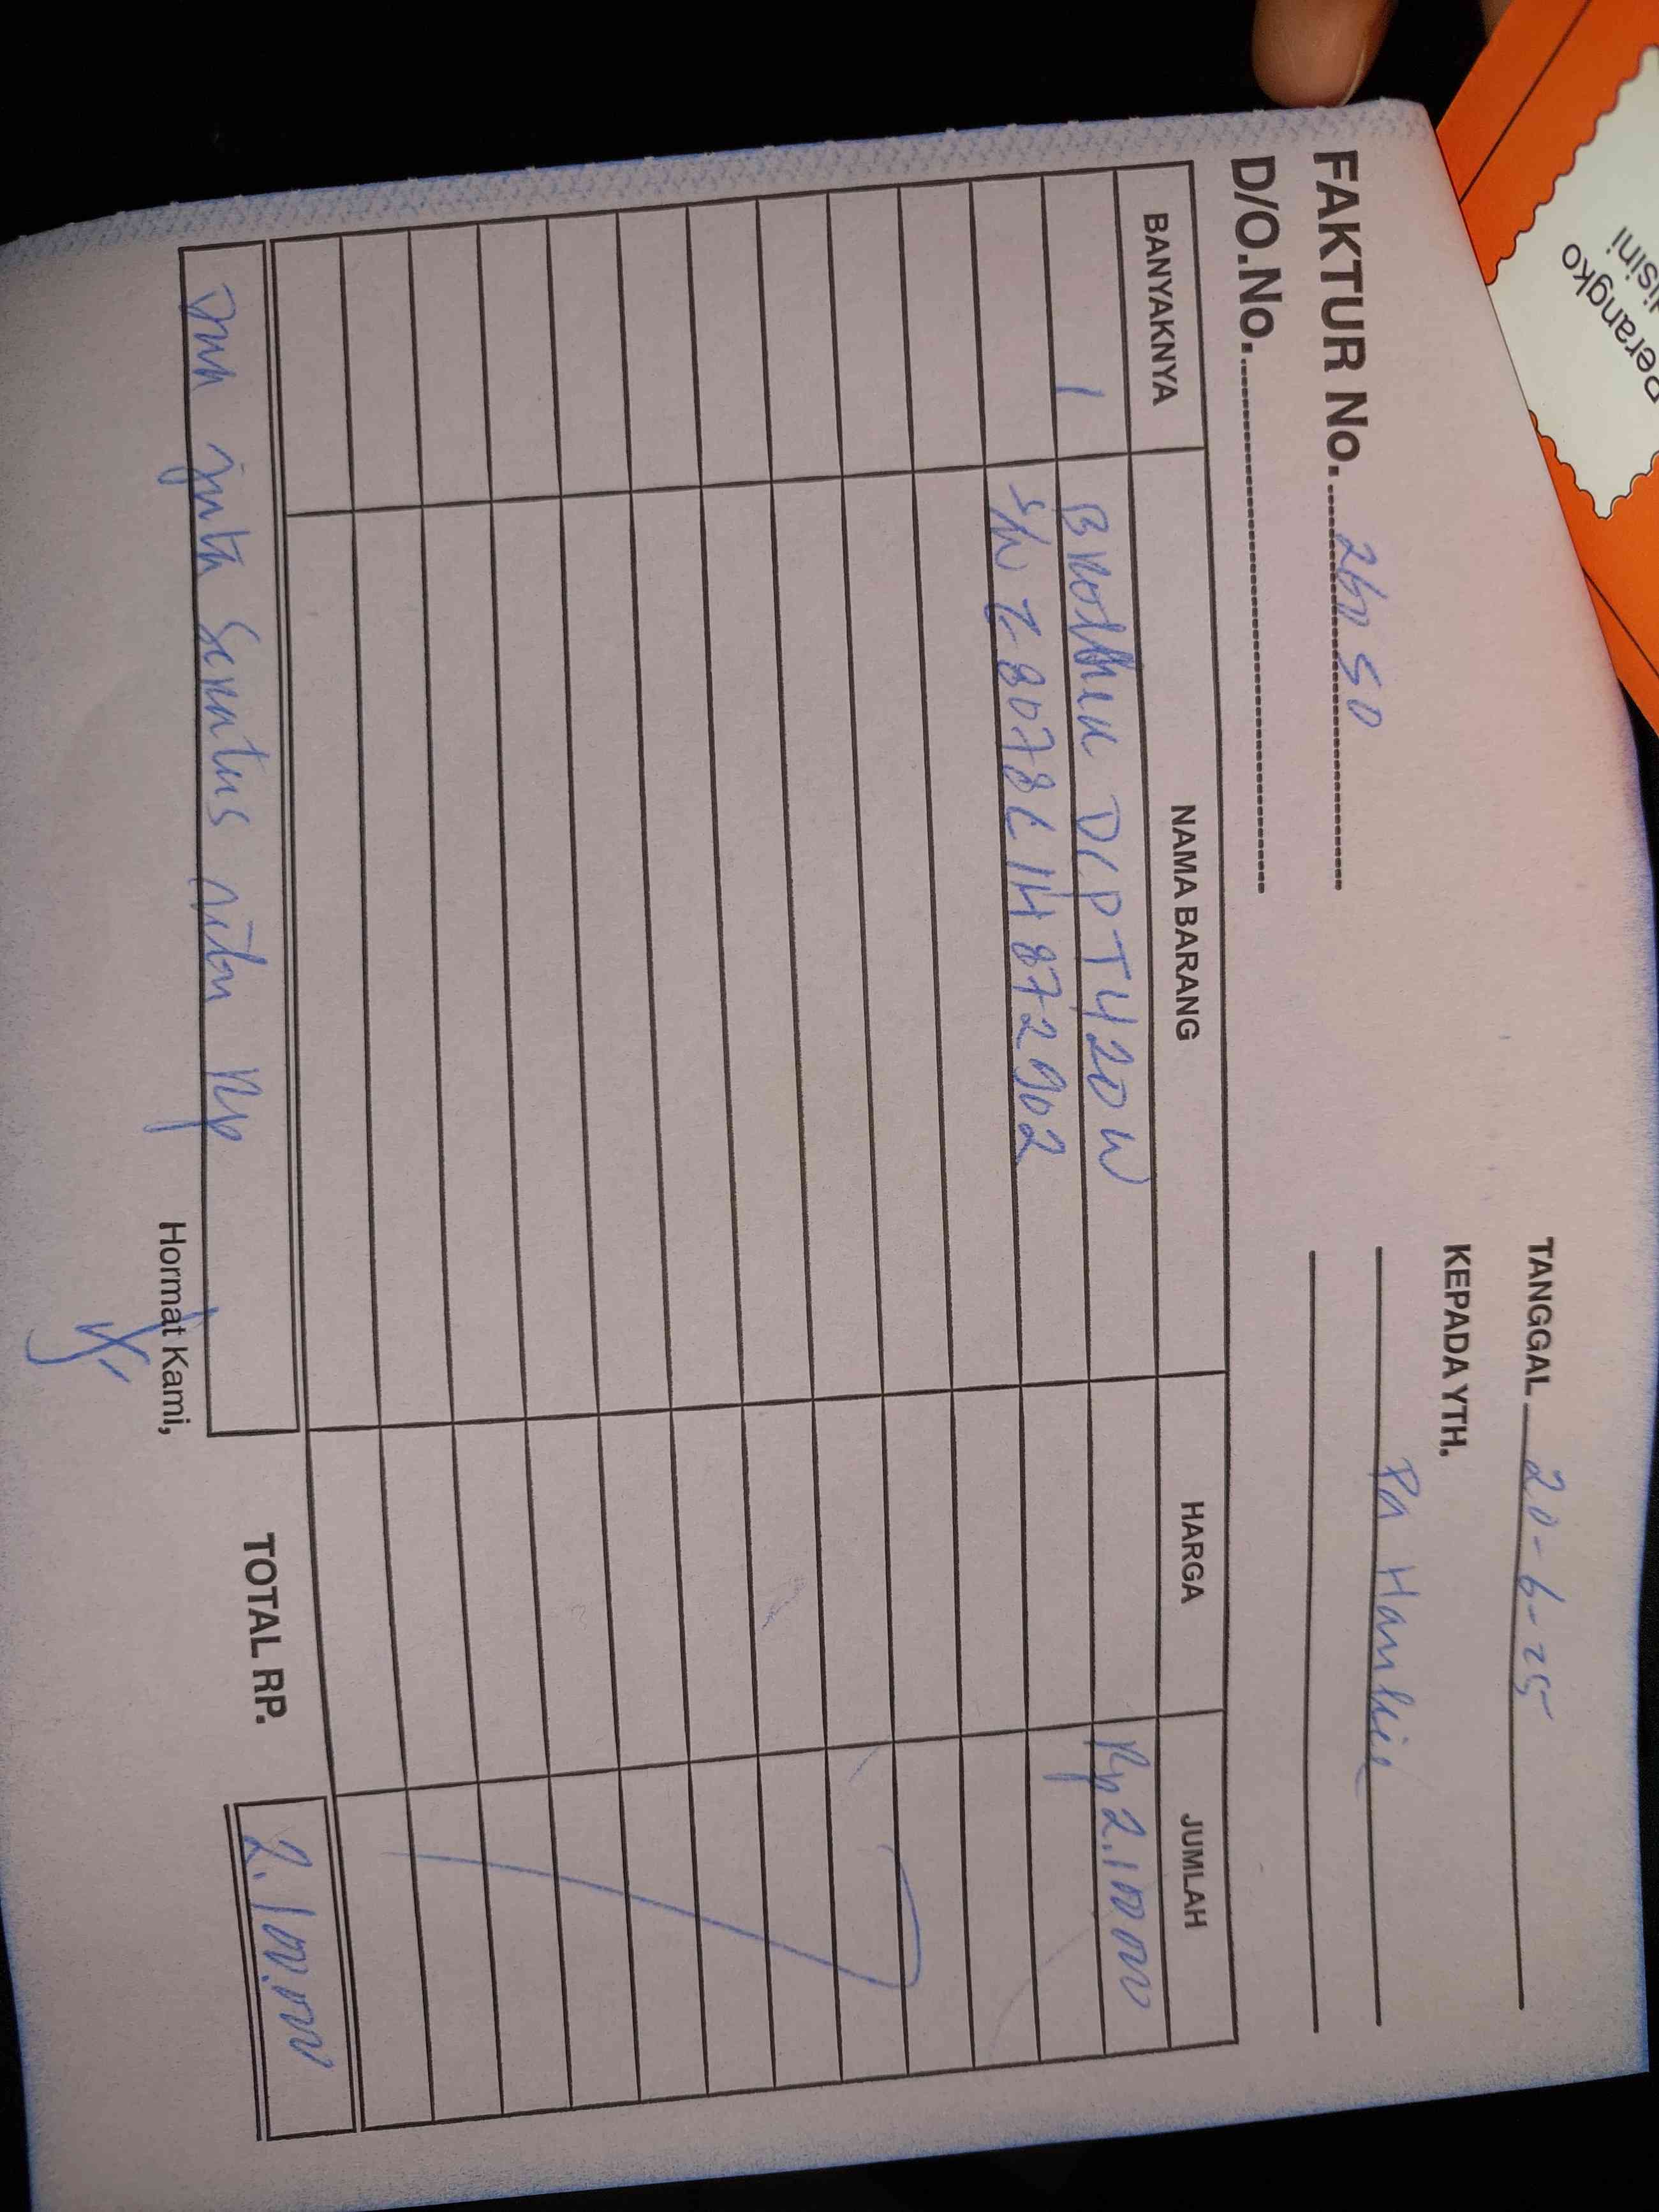 FAKTUR No. 26050
D/O.No.
TANGGAL 20-6-25
KEPADA YTH.
Pa
BANYAKNYA NAMA BARANG HARGA JUMLAH
1 Brother DCPT420W Rp 2.100.000
S/N
Dua juta seratus ribu Rp
TOTAL RP. 2.100.000
Hormat Kami,
Perangko
disini